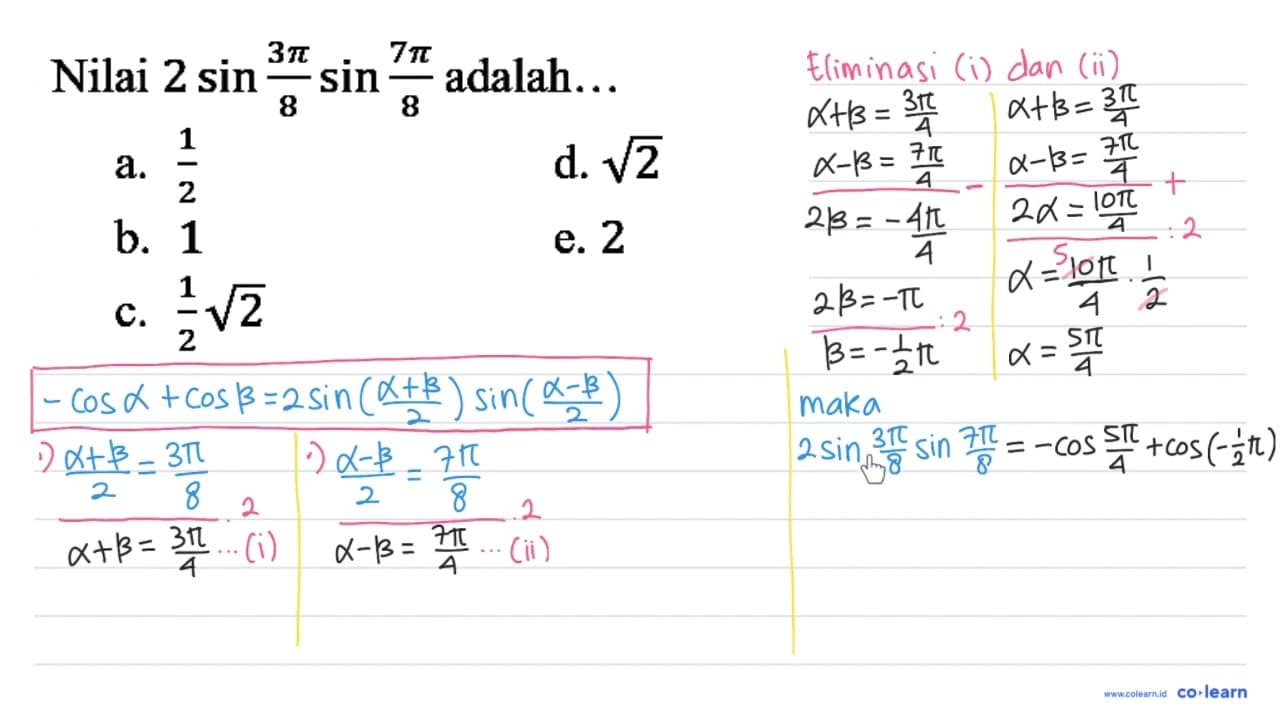 Nilai 2 sin 3π/8 sin 7π/8 adalah...
a. 1/2
b. 1
c. 1/2 √2
d. √2
e. 2
-cos α + cos β = 2 sin (α+β/2) sin (α-β/2)
·) α+β/2 = 3π/8
.2
α+β = 3π/4 ... (i)
·) α-β/2 = 7π/8
.2
α-β = 7π/4 ... (ii)
Eliminasi (i) dan (ii)
α+β = 3π/4
α-β = 7π/4 -
2β = -4π/4
2β = -π :2
β = -1/2 π
α+β = 3π/4
α-β = 7π/4 +
2α = 10π/4 :2
α = 10π/4 . 1/2
5
α = 5π/4
maka
2 sin 3π/8 sin 7π/8 = -cos 5π/4 + cos (-1/2 π)
www.colearn.id co·learn